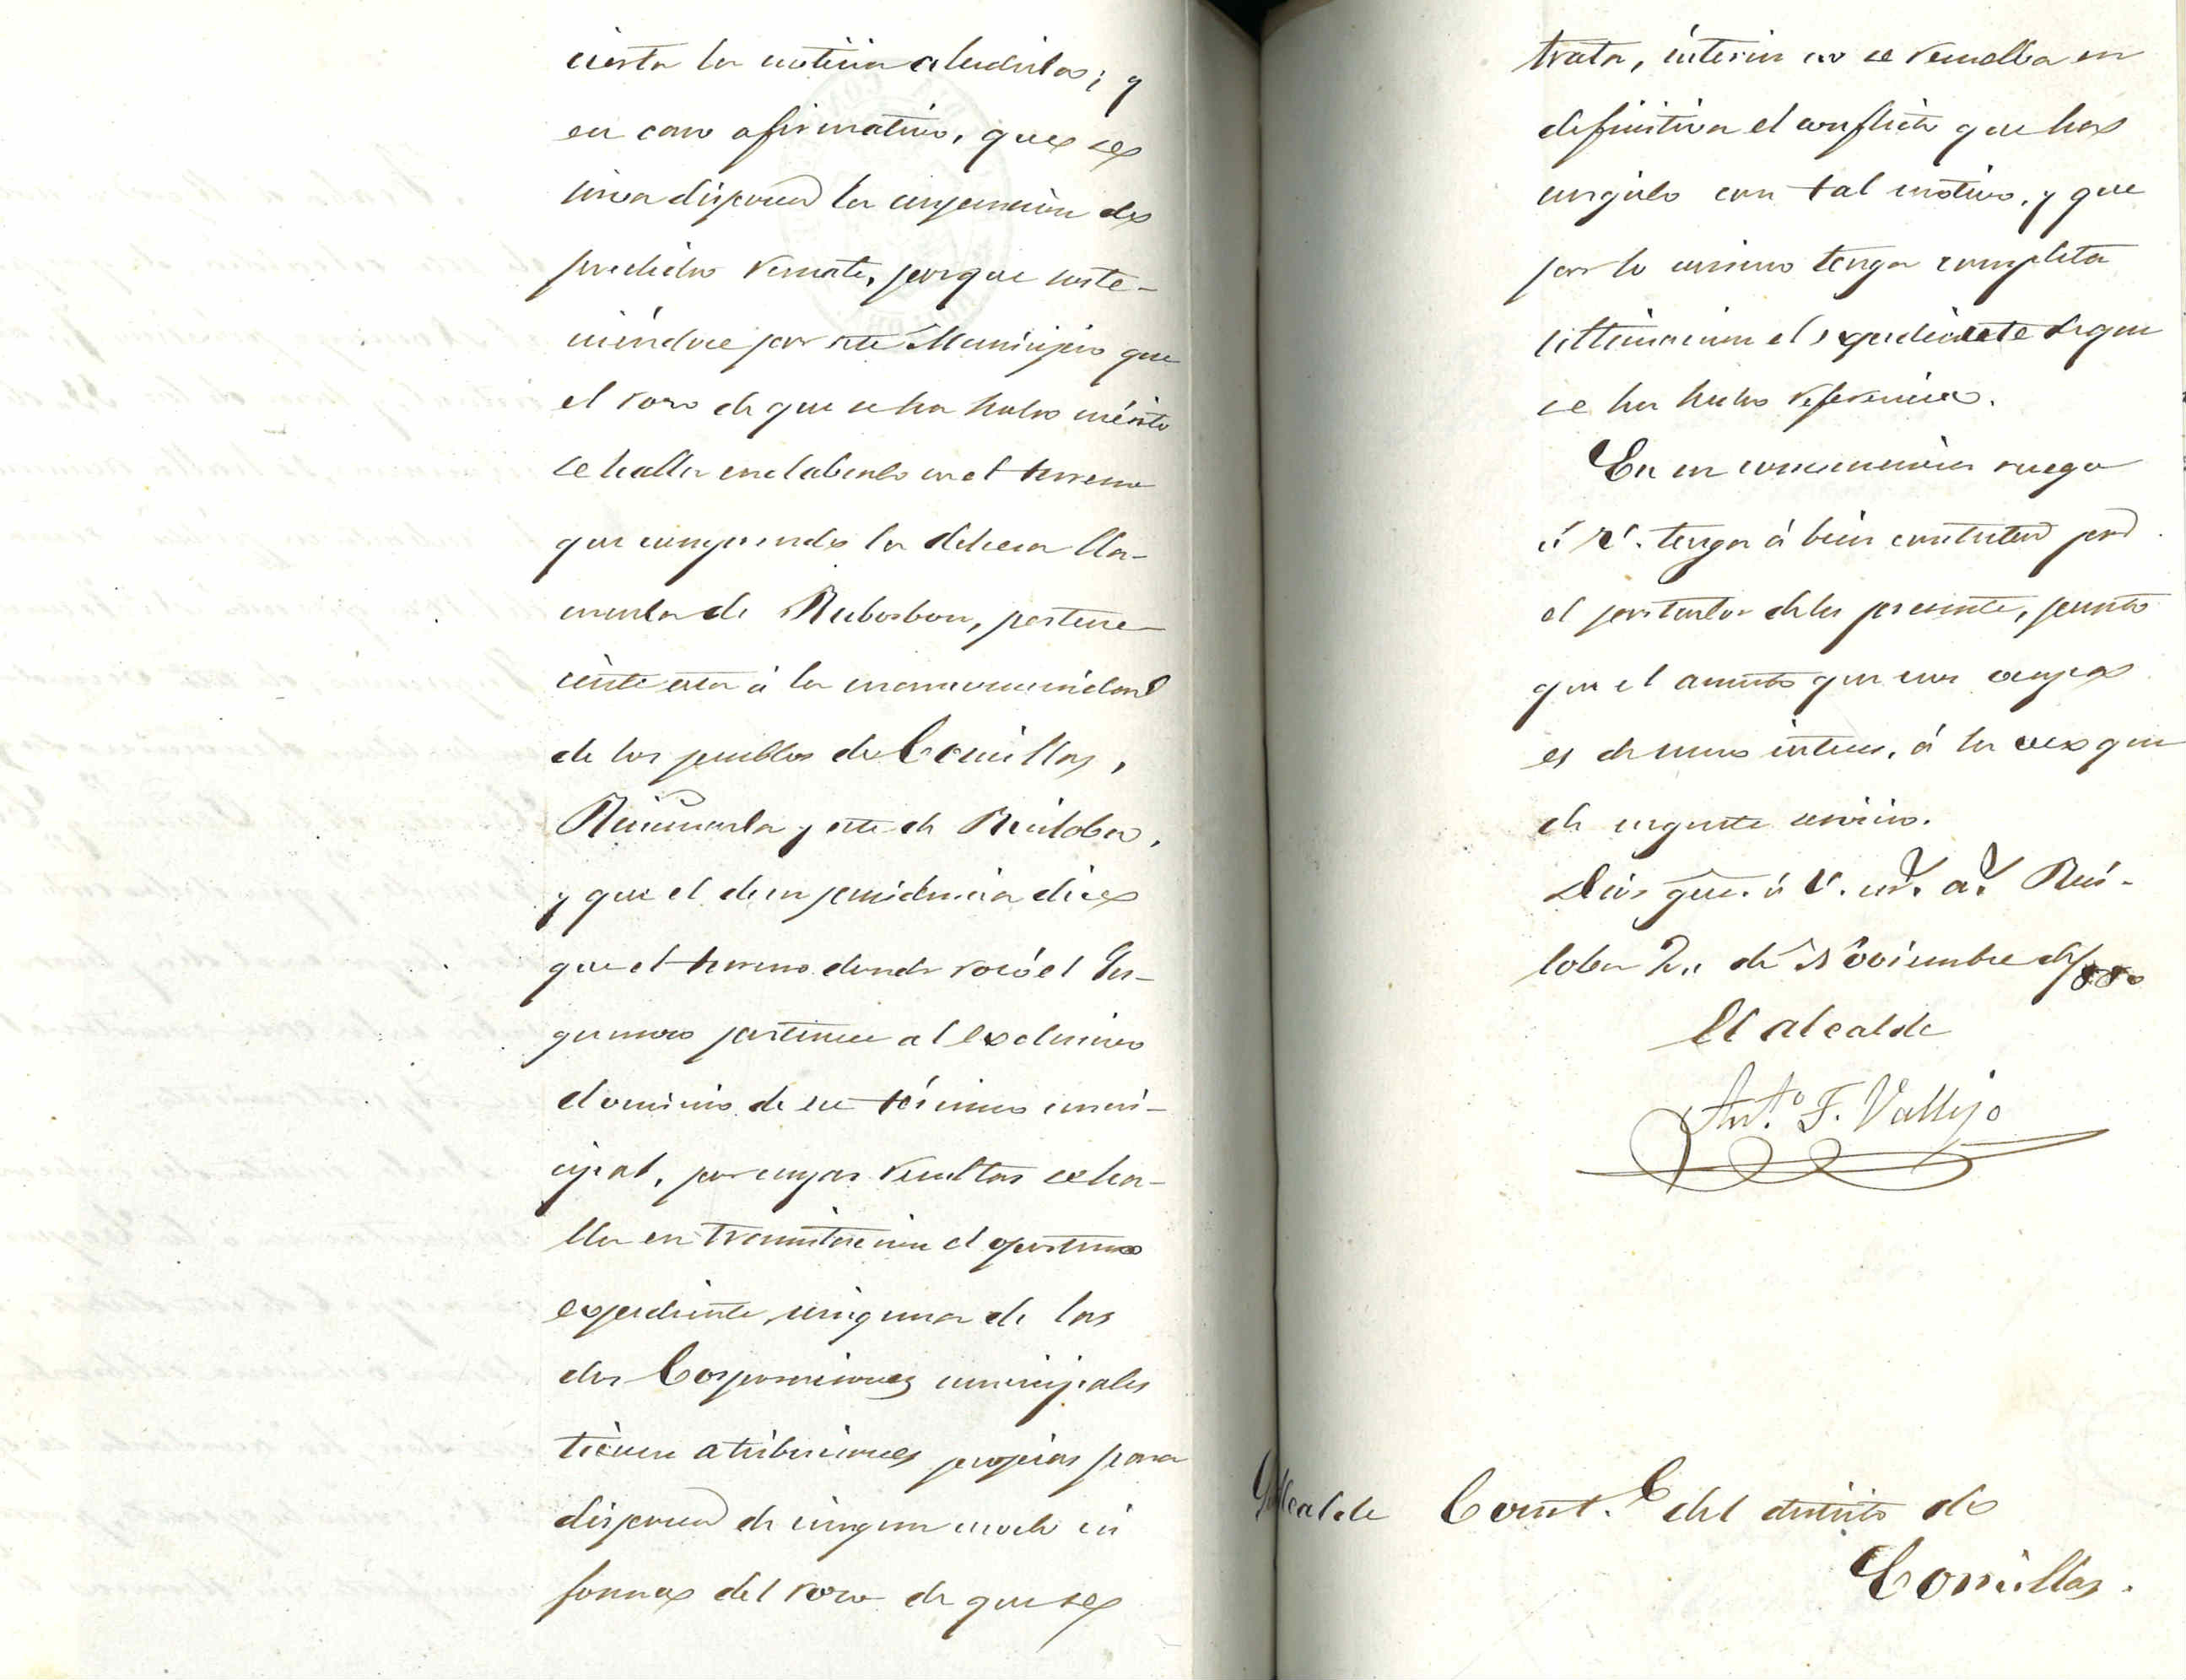 cierta la noticia aludida; y
en caso afirmativo, que se
sirva disponer la suspension de
predicho remate, porque soste-
niéndose por este Municipio que
el rozo de que se ha hecho mérito
se halla enclabado en el terreno
que comprende la dehesa lla-
mada de Ruborbon, pertene-
ciente esta á la mancomunidad
de los pueblos de Comillas,
Ruiseñada y este de Ruiloba,
y que el de su presidencia dice
que el terreno donde rozó el
pertenece al exclusivo
dominio de su término muni-
cipal, por cuyas resultas se ha-
lla en tramitacion el oportuno
expediente, ninguna de las
dos Corporaciones municipales
tienen atribuciones propias para
disponer de ningun modo ni
forma del rozo de que se
trata, ínterin no se resuelba en
definitiva el conflicto que ha
surgido con tal motivo, y que
por lo mismo tenga completa
ultimacion el expediente de que
se ha hecho referencia.
En su consecuencia ruego
á V. tenga á bien contestar por
el portador de la presente, puesto
que el asunto que nos ocupa
es de sumo interes, á la vez que
de urgente servicio.
Dios gue. á V. ms. as. Rui-
loba 2 de Noviembre de 1880
El alcalde
Ant.º F. Vallejo
Alcalde Const.l del distrito de
Comillas.